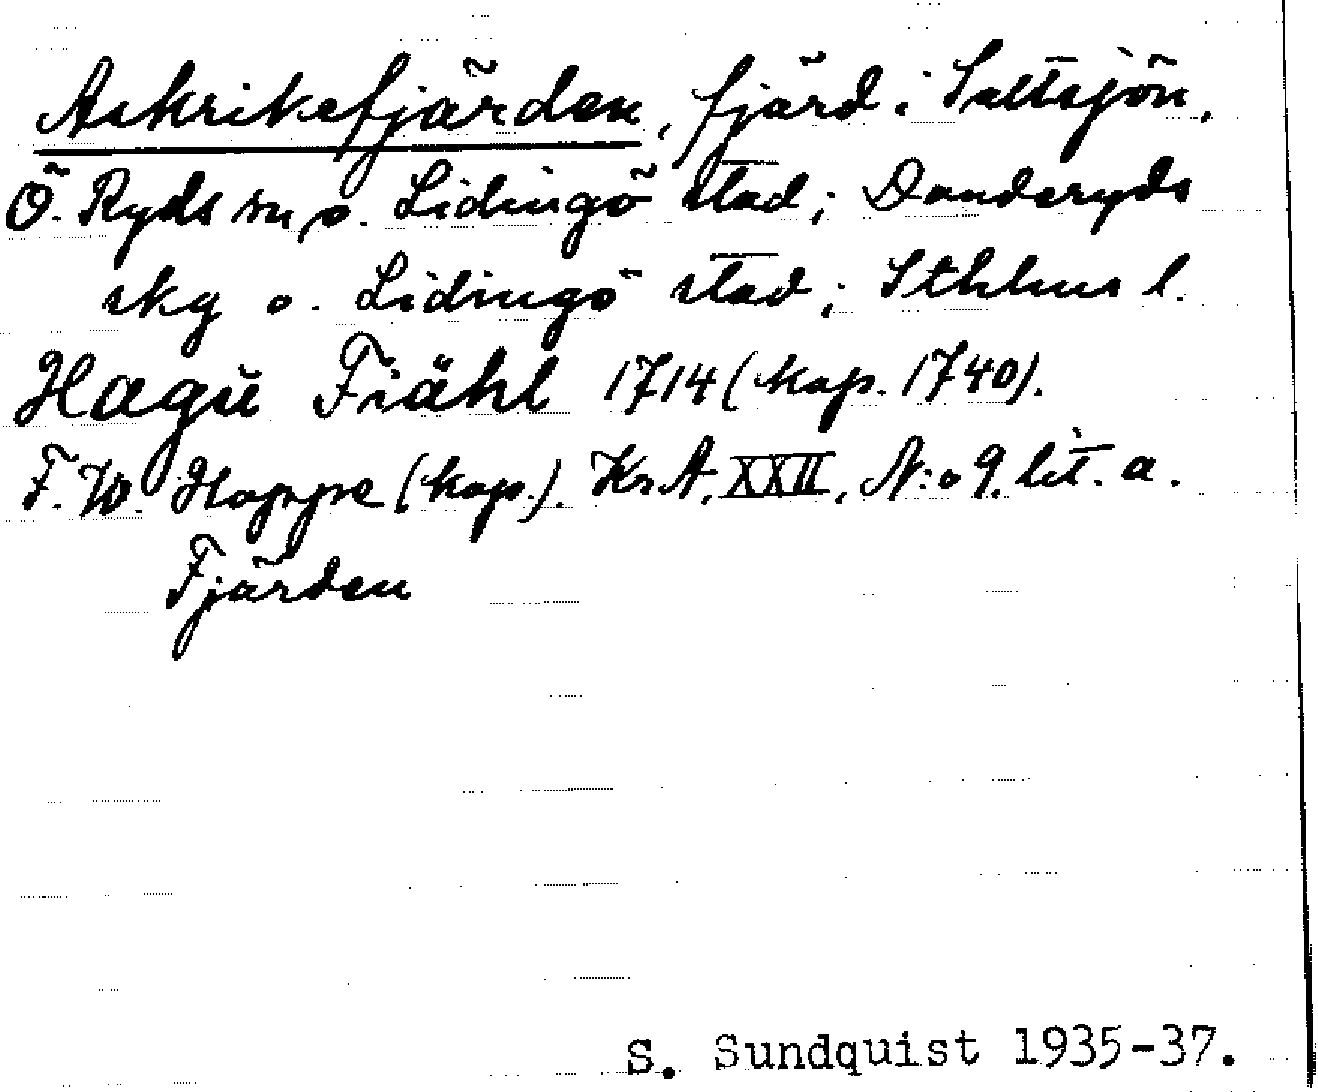 Askrikefjärden, fjärd i Saltsjön,
Ö. Ryds sn, o. Lidingö stad; Danderyds
skg o. Lidingö stad; Sthlms l.
Hagu Fiähl 1714 (kop. 1740).
F. W. Hoppe (kop.). KrA, XXII, N:o 9. lit. a.
Fjärden
S. Sundquist 1935-37.